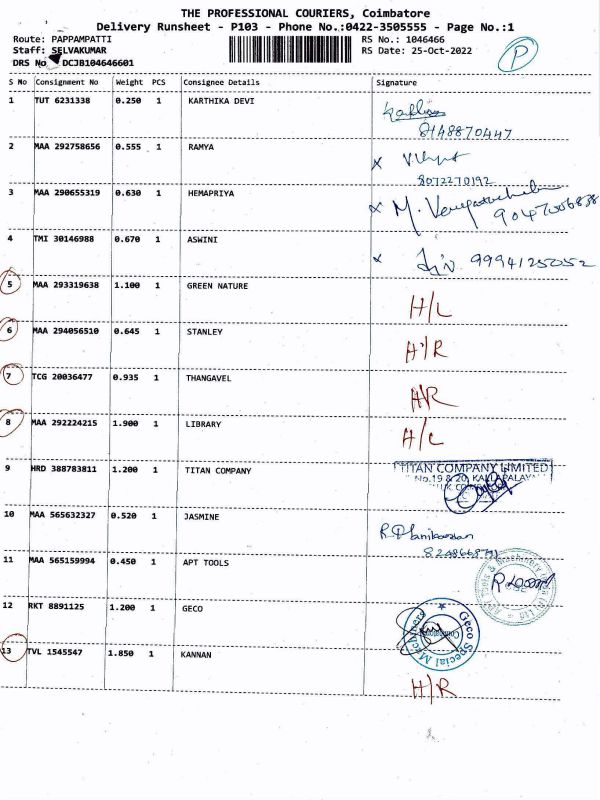 THE PROFESSIONAL COURIERS, Coimbatore
Delivery Runsheet - P103 - Phone No.:0422-3505555 - Page No.:1
Route: PAPPAMPATTI RS No.: 1046466
Staff: SELVAKUMAR RS Date: 25-Oct-2022
DRS No DCJB104646601
P
S No Consignment No Weight PCS Consignee Details Signature
1 TUT 6231338 0.250 1 KARTHIKA DEVI
8148870447
2 MAA 292758656 0.555 1 RAMYA x
8072270192
3 MAA 290655319 0.630 1 HEMAPRIYA x M.
4 TMI 30146988 0.670 1 ASWINI x 9994125052
5 MAA 293319638 1.100 1 GREEN NATURE H/L
6 MAA 294056510 0.645 1 STANLEY H/R
7 TCG 20036477 0.935 1 THANGAVEL H/R
8 MAA 292224215 1.900 1 LIBRARY H/L
9 HRD 388783811 1.200 1 TITAN COMPANY TITAN COMPANY LIMITED
No.19 & 20, KALLAPALAY
10 MAA 565632327 0.520 1 JASMINE
11 MAA 565159994 0.450 1 APT TOOLS
12 RKT 8891125 1.200 1 GECO Geco Special Machiners
13 TVL 1545547 1.850 1 KANNAN H/R